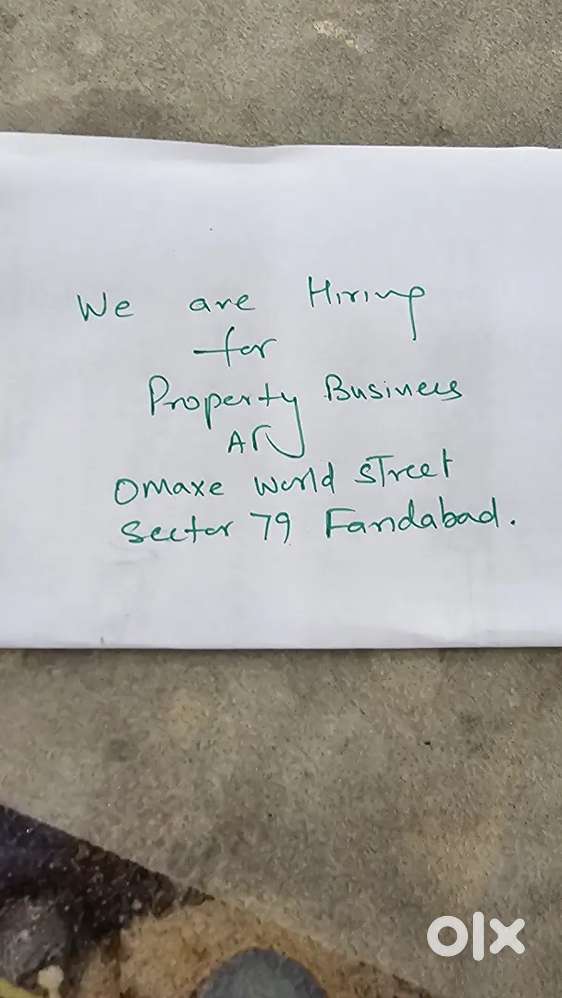 We are Hiring
for
Property Business
AT
Omaxe World Street
Sector 79 Faridabad.
olx